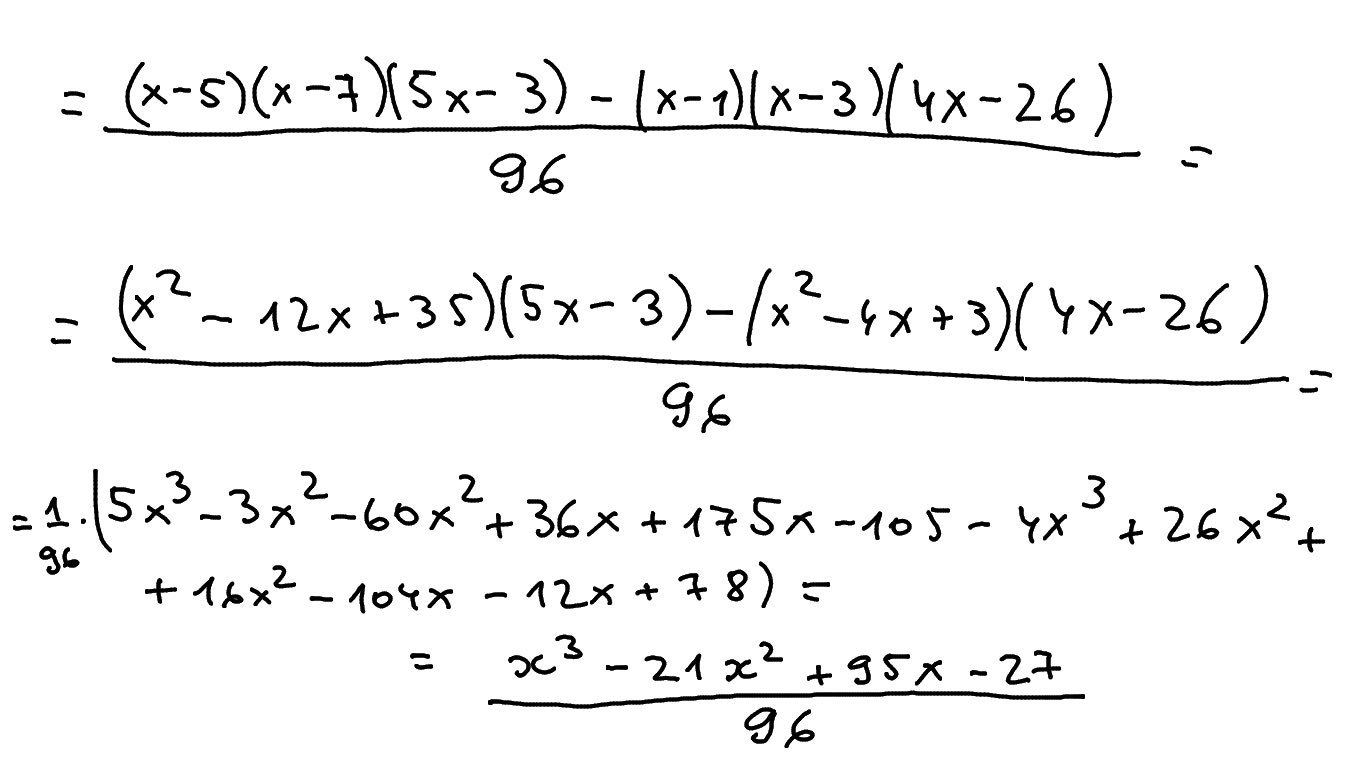 = \frac{(x-5)(x-7)(5x-3) - (x-1)(x-3)(4x-26)}{96} =
= \frac{(x^2 - 12x + 35)(5x-3) - (x^2 - 4x + 3)(4x-26)}{96} =
= \frac{1}{96} \cdot (5x^3 - 3x^2 - 60x^2 + 36x + 175x - 105 - 4x^3 + 26x^2 +
+ 16x^2 - 104x - 12x + 78) =
= \frac{x^3 - 21x^2 + 95x - 27}{96}